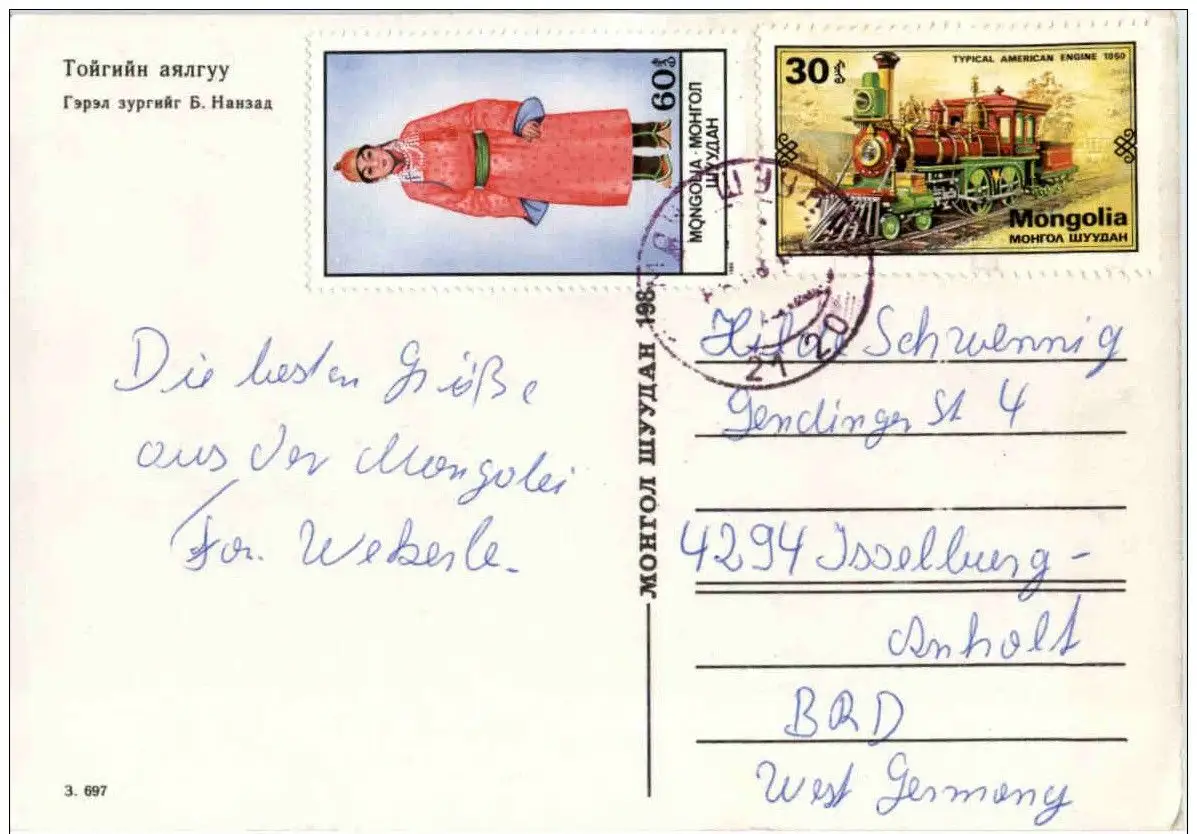 Тойгийн аялгуу
Гэрэл зургийг Б. Нанзад
60
MONGOLIA · МОНГОЛ
ШУУДАН
30
TYPICAL AMERICAN ENGINE 1860
Mongolia
МОНГОЛ ШУУДАН
21 20
МОНГОЛ ШУУДАН 198
Die besten Grüße
aus der Mongolei
Fa. Weberle
Schwennig
Gendinger St 4
4294 Isselburg-
Anholt
BRD
West Germany
З. 697